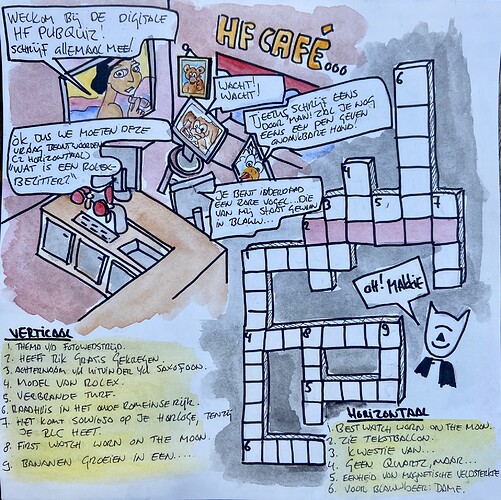 WELKOM BIJ DE DIGITALE
HF PUBQUIZ!
SCHRIJF ALLEMAAL MEE!
HF CAFÉ...
WACHT!
WACHT!
TJEETJE, SCHRIJF EENS
DOOR MAN! ZAL JE NOG
EENS EEN PEN GEVEN
ONDANKBARE HOND.
OK, DUS WE MOETEN DEZE
VRAAG BEANTWOORDEN
(2 HORIZONTAAL)
"WAT IS EEN ROLEX-
BEZITTER?"
JE BENT INDERDAAD
EEN RARE VOGEL... DIE
VAN MIJ STAAT GEWOON
IN BLAUW...
6
4
3
5
7
2
1
4
8
9
5
6
OH! MAKKIE
VERTICAAL
1. THEMA V/D FOTOWEDSTRIJD.
2. HEEFT RIK GRATIS GEKREGEN.
3. ACHTERNAAM VD UITVINDER VD SAXOFOON.
4. MODEL VAN ROLEX.
5. VERBRANDE TURF.
6. RAADHUIS IN HET OUDE ROMEINSE RIJK.
7. HET KOMT SOWIESO OP JE HORLOGE, TENZIJ
JE RLC HEET.
8. FIRST WATCH WORN ON THE MOON.
9. BANANEN GROEIEN IN EEN....
HORIZONTAAL
1. BEST WATCH WORN ON THE MOON.
2. ZIE TEKSTBALLON.
3. KWESTIE VAN...
4. GEEN QUARTZ, MAAR...
5. EENHEID VAN MAGNETISCHE VELDSTERKTE
6. VOOR BLAUW, DEER: DAME.